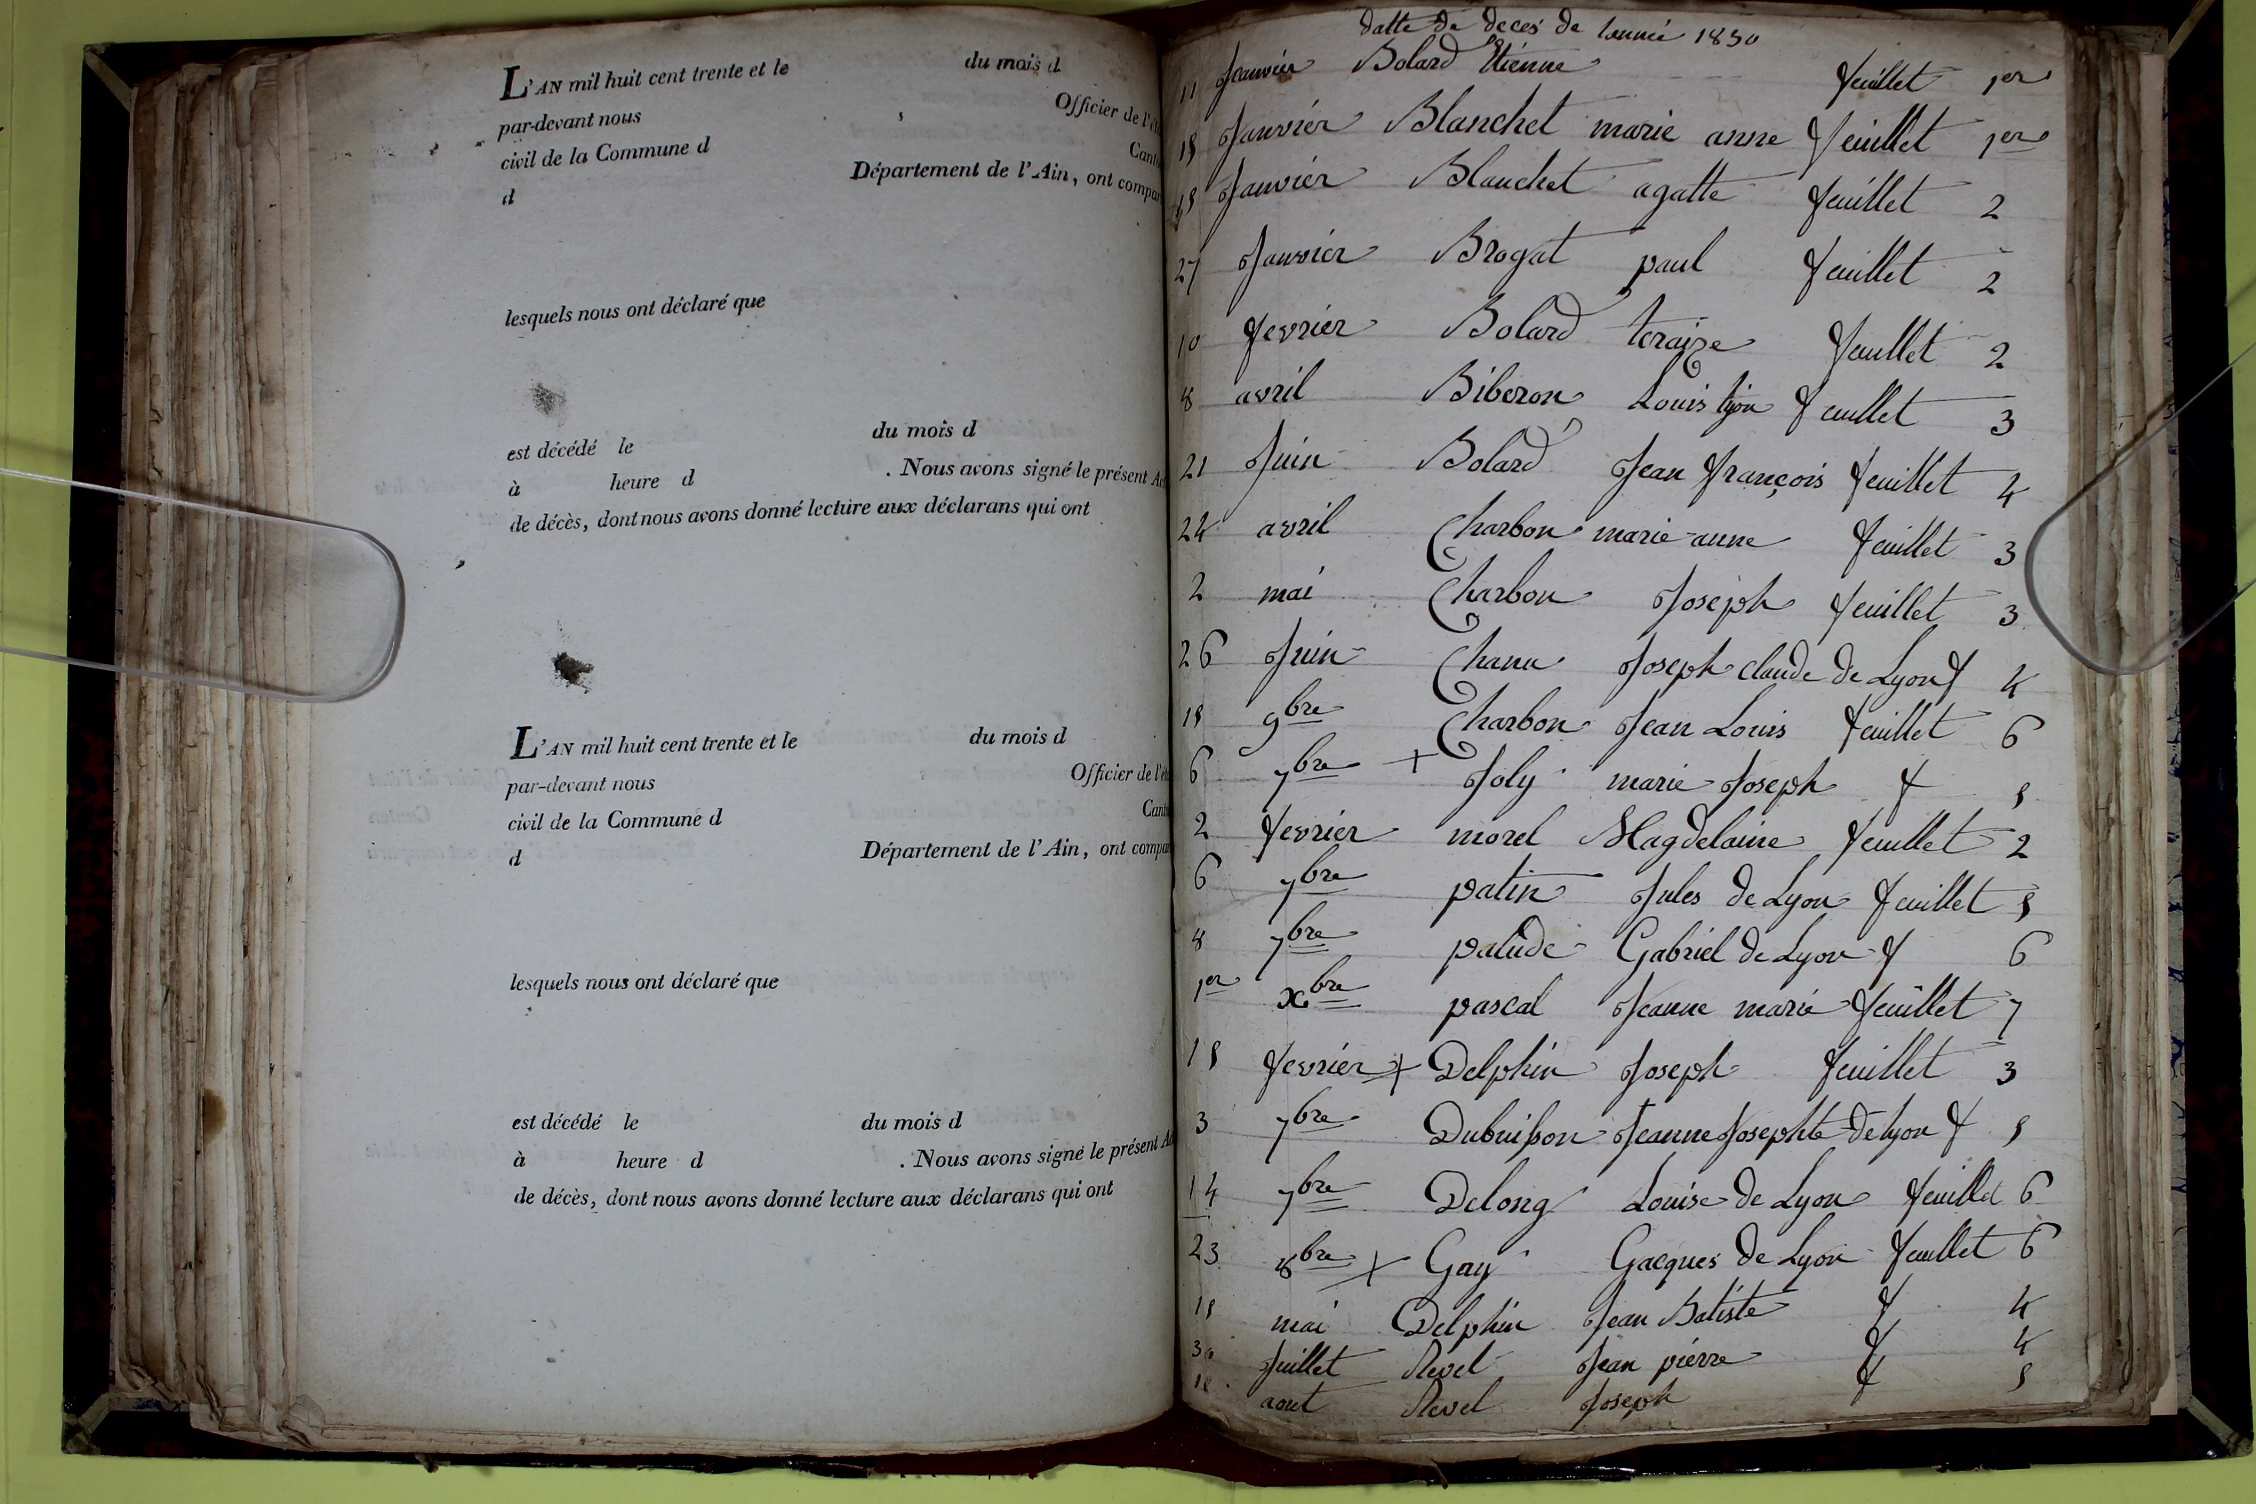 L'AN mil huit cent trente et le du mois d
par-devant nous Officier de l'ét
civil de la Commune d Cant
d Département de l'Ain, ont compar
lesquels nous ont déclaré que
est décédé le du mois d
à heure d . Nous avons signé le présent Ac
de décès, dont nous avons donné lecture aux déclarans qui ont
L'AN mil huit cent trente et le du mois d
par-devant nous Officier de l'ét
civil de la Commune d Cant
d Département de l'Ain, ont compar
lesquels nous ont déclaré que
est décédé le du mois d
à heure d . Nous avons signé le présent Ac
de décès, dont nous avons donné lecture aux déclarans qui ont
datte de deces de lannée 1830
11 Janvier Bolard Etienne feuillet 1er
15 Janvier Blanchet marie anne feuillet 1er
15 Janvier Blanchet agatte feuillet 2
27 Janvier Brogat paul feuillet 2
10 fevrier Bolard teraize feuillet 2
8 avril Biberon Louis lyon feuillet 3
21 Juin Bolard Jean françois feuillet 4
24 avril Charbon marie anne feuillet 3
2 mai Charbon Joseph feuillet 3
26 Juin Chana Joseph claude de Lyon f 4
15 9bre Charbon Jean Louis feuillet 6
6 7bre + Joly marie Joseph f 5
2 fevrier morel Magdelaine feuillet 2
6 7bre patin Jules de Lyon feuillet 5
8 7bre palude Gabriel de Lyon f 6
1er xbre pascal Jeanne marie feuillet 7
15 fevrier + Delphin Joseph feuillet 3
3 7bre Dubuisson Jeanne Josephte de lyon f 5
14 7bre Delong Louise de Lyon feuillet 6
23 8bre + Gay Gacques de Lyon feuillet 6
15 mai Delphin Jean Batiste f 4
30 Juillet Revel Jean pierre f 4
aout Revel Joseph f 5